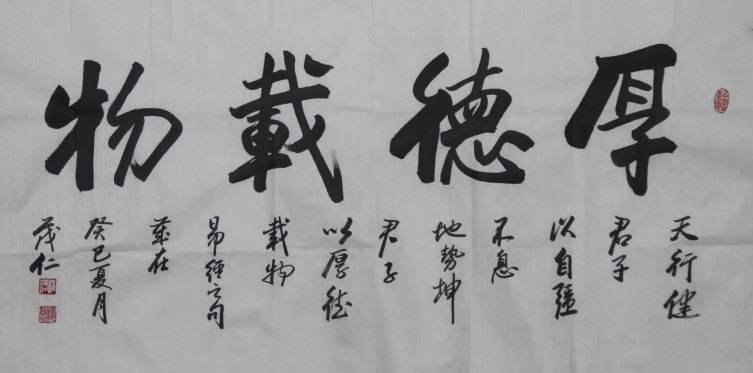 厚德載物
天行健
君子
以自强
不息
地勢坤
君子
以厚德
載物
易經之句
癸巳夏月
茂仁